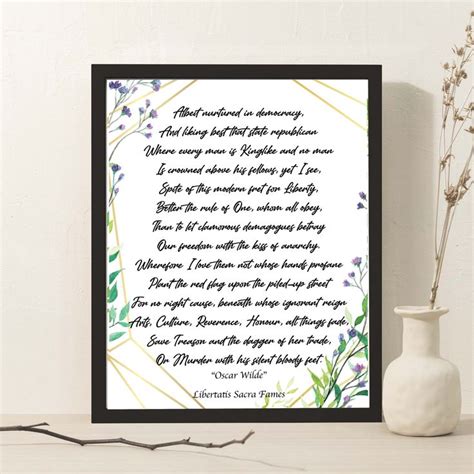 Albeit nurtured in democracy,
And liking best that state republican
Where every man is Kinglike and no man
Is crowned above his fellows, yet I see,
Spite of this modern fret for Liberty,
Better the rule of One, whom all obey,
Than to let clamorous demagogues betray
Our freedom with the kiss of anarchy.
Wherefore I love them not whose hands profane
Plant the red flag upon the piled-up street
For no right cause, beneath whose ignorant reign
Arts, Culture, Reverence, Honour, all things fade,
Save Treason and the dagger of her trade,
Or Murder with his silent bloody feet.
"Oscar Wilde"
Libertatis Sacra Fames